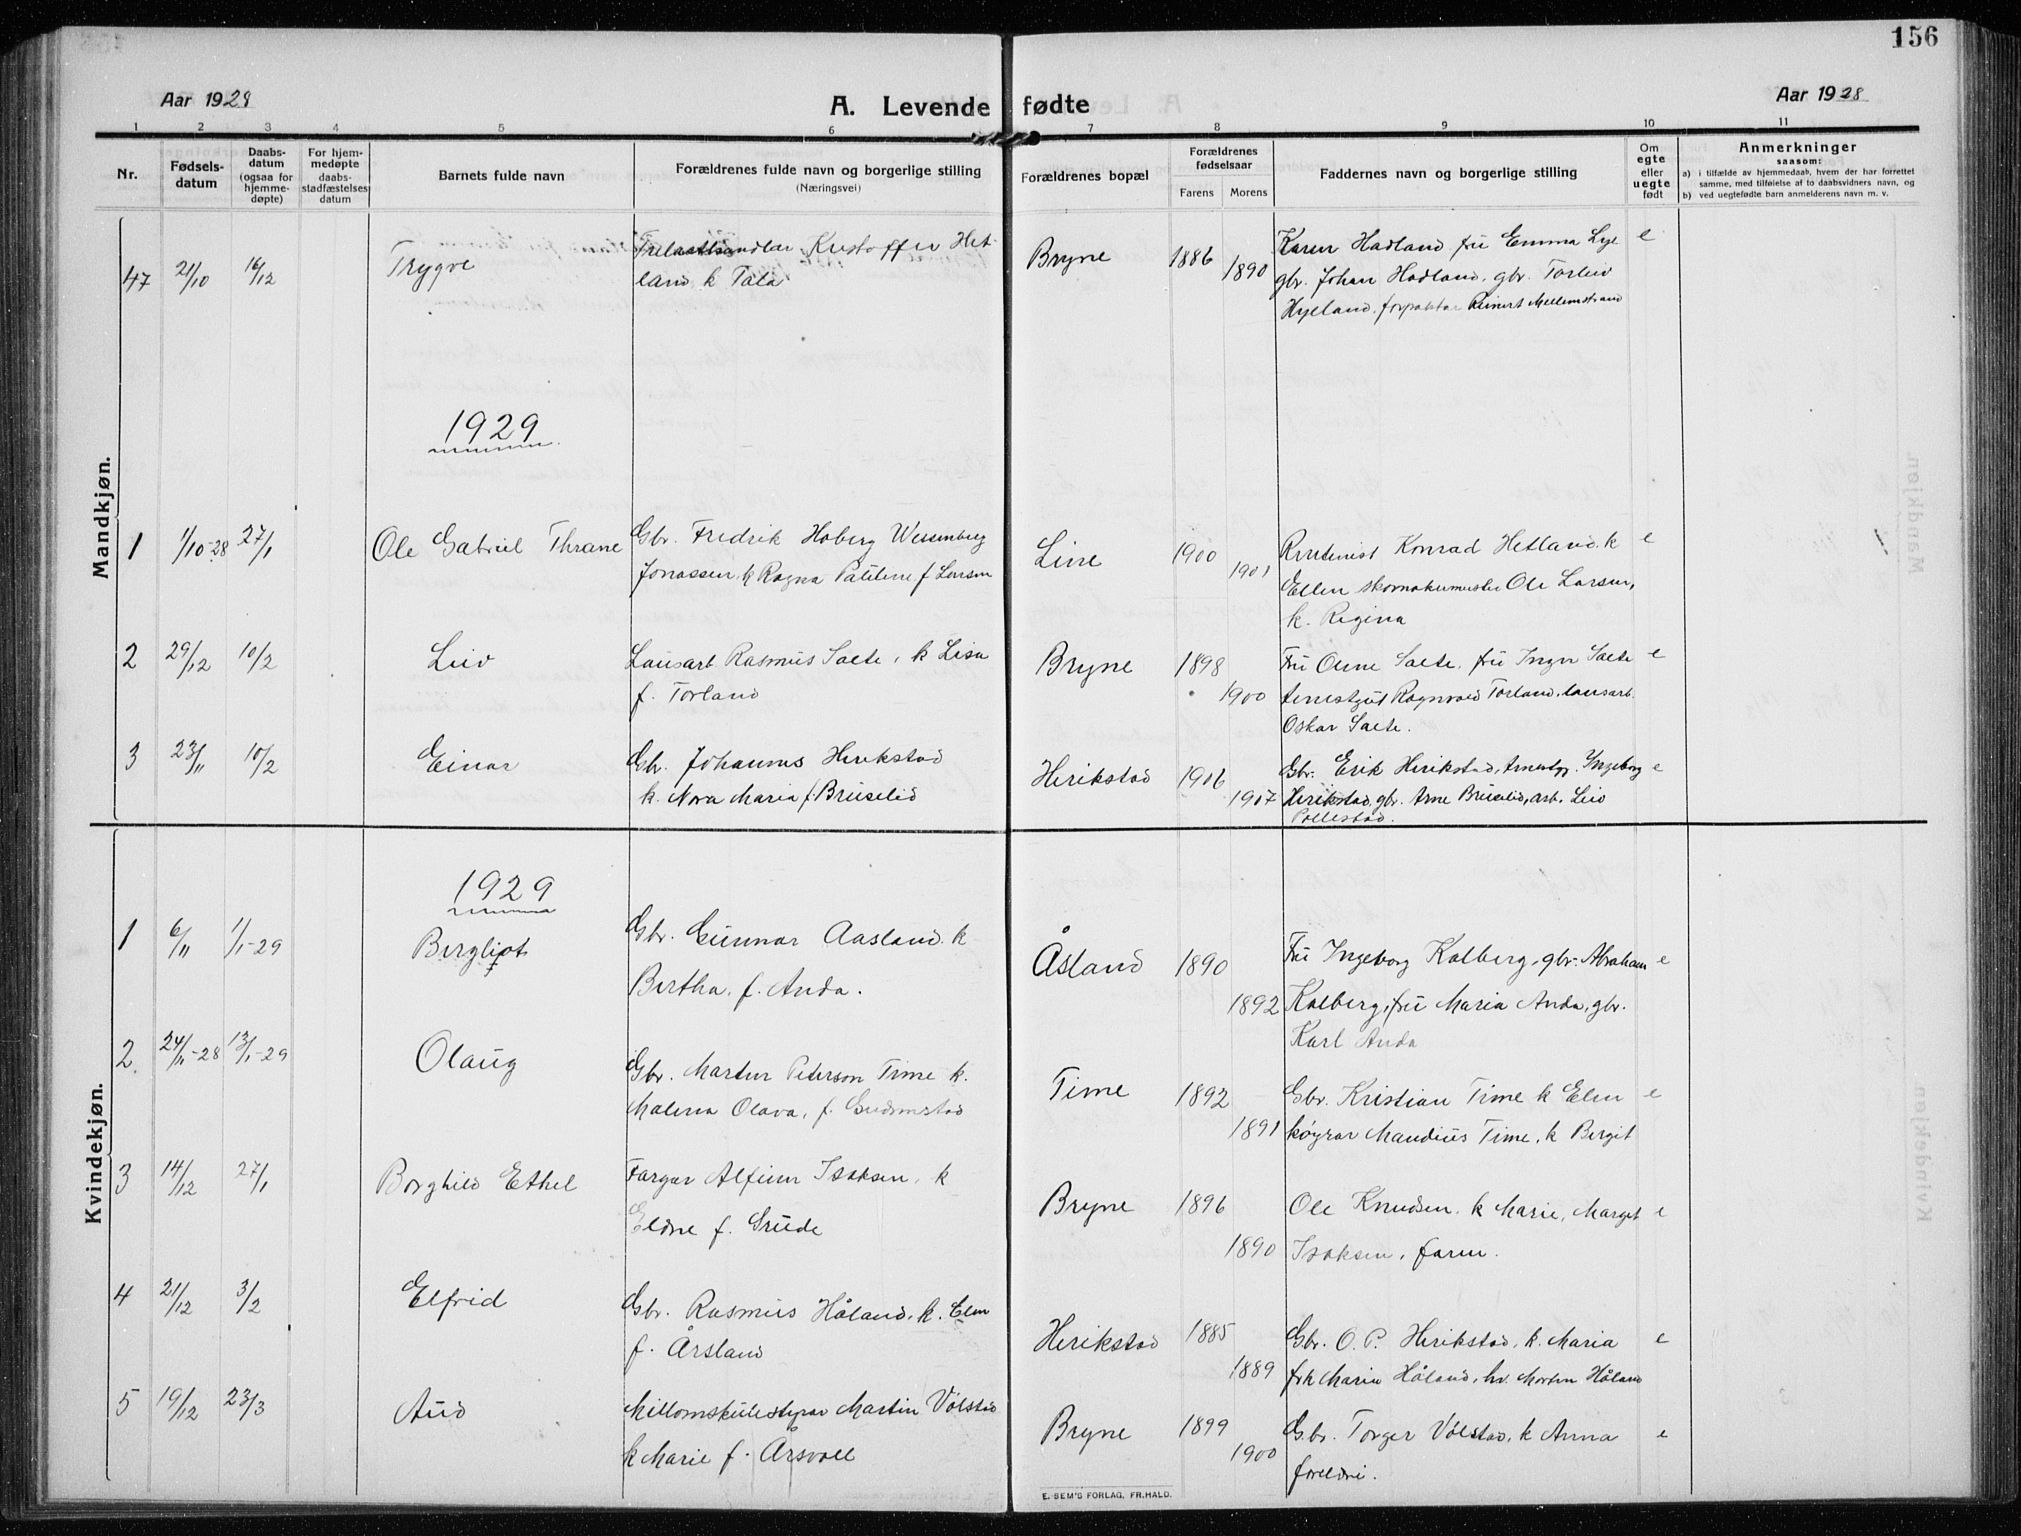 156
Aar 1928
A. Levende fødte
Aar 1928
1 2 3 4 5 6 7 8 9 10 11
Nr.
Fødsels-
datum
Daabs-
datum
(ogsaa for
hjemme-
døpte)
For hjem-
medøpte
daabs-
stadfæstelses
datum
Barnets fulde navn
Forældrenes fulde navn og borgerlige stilling
(Næringsvei)
Forældrenes bopæl
Forældrenes
fødselsaar
Farens Morens
Faddernes navn og borgerlige stilling
Om
egte
eller
uegte
født
Anmerkninger
saasom:
a) i tilfælde av hjemmedaab, hvem der har forrettet
samme, med tilføielse av to daabsvidners navn, og
b) ved uegtefødte barn anmelderens navn m. v.
Mandkjøn.
47 21/10 16/12 Trygve Kristoffer Het-
land k Tala
Bryne 1886 1890
Karen Hadland fru Emma Lye e
gbr. Johan Hadland, gbr. Torleiv
Hyelland, forpaktar Reinert Mellemstrand
1929
1 1/10-28 27/1 Ole Gabriel Thrane
Gbr. Fredrik Hoberg Wessenberg
Jonassen k Ragna Pateline f Larsen
Line 1900 1901
Konrad Hetland k e
Ellen skomakermester Ole Larsen,
k. Regina
2 29/12 10/2 Leiv
Lausarb Rasmus Saete, k Lisa
f. Torland
Bryne 1898 1900
Fru Olene Saete, fru Inga Saete e
tenestgut Ragnvald Torland, lausarb.
Oskar Saete.
3 23/11 10/2 Einar
Gbr. Johannes Herikstad
k. Nora Maria f. Bruselid
Herikstad 1906 1907
Gbr. Erik Herikstad, tenestgj. Ingeborg e
Herikstad, gbr. Arne Bruselid, arb. Leiv
Pollestad.
Kvindekjøn.
1929
1 6/11 1/1-29 Bergljot
Gbr. Gunnar Aasland k
Bertha, f. Anda.
Åsland 1890 1892
Fru Ingeborg Kalberg, gbr. Abraham e
Kalberg, fru Maria Anda, gbr.
Karl Anda
2 24/11-28 13/1-29 Olaug
Gbr. Martin Peterson Time k.
Malena Olava, f. Gudmestad
Time 1892 1891
Gbr. Kristian Time k Elen e
køyrar Mandius Time, k Bergit
3 14/12 27/1 Borghild Ethel
Fargar Alfinn Isaksen, k
Eldne f. Grude
Bryne 1896 1890
Ole Knudsen, k Marie, Marget e
Isaksen, faren.
4 21/12 3/2 Elfrid
Gbr. Rasmus Håland, k. Elen
f. Årsland
Herikstad 1885 1889
Gbr. O. P. Herikstad, k. Maria e
frk Maria Håland, hv. Morten Håland
5 19/12 23/3 Aud
Millomskulestyrar Martin Vølstad
k Marie f. Årsvoll
Bryne 1899 1900
Gbr. Torger Vølstad, k Anna e
foreldri.
E. SEM'S FORLAG, FR.HALD.